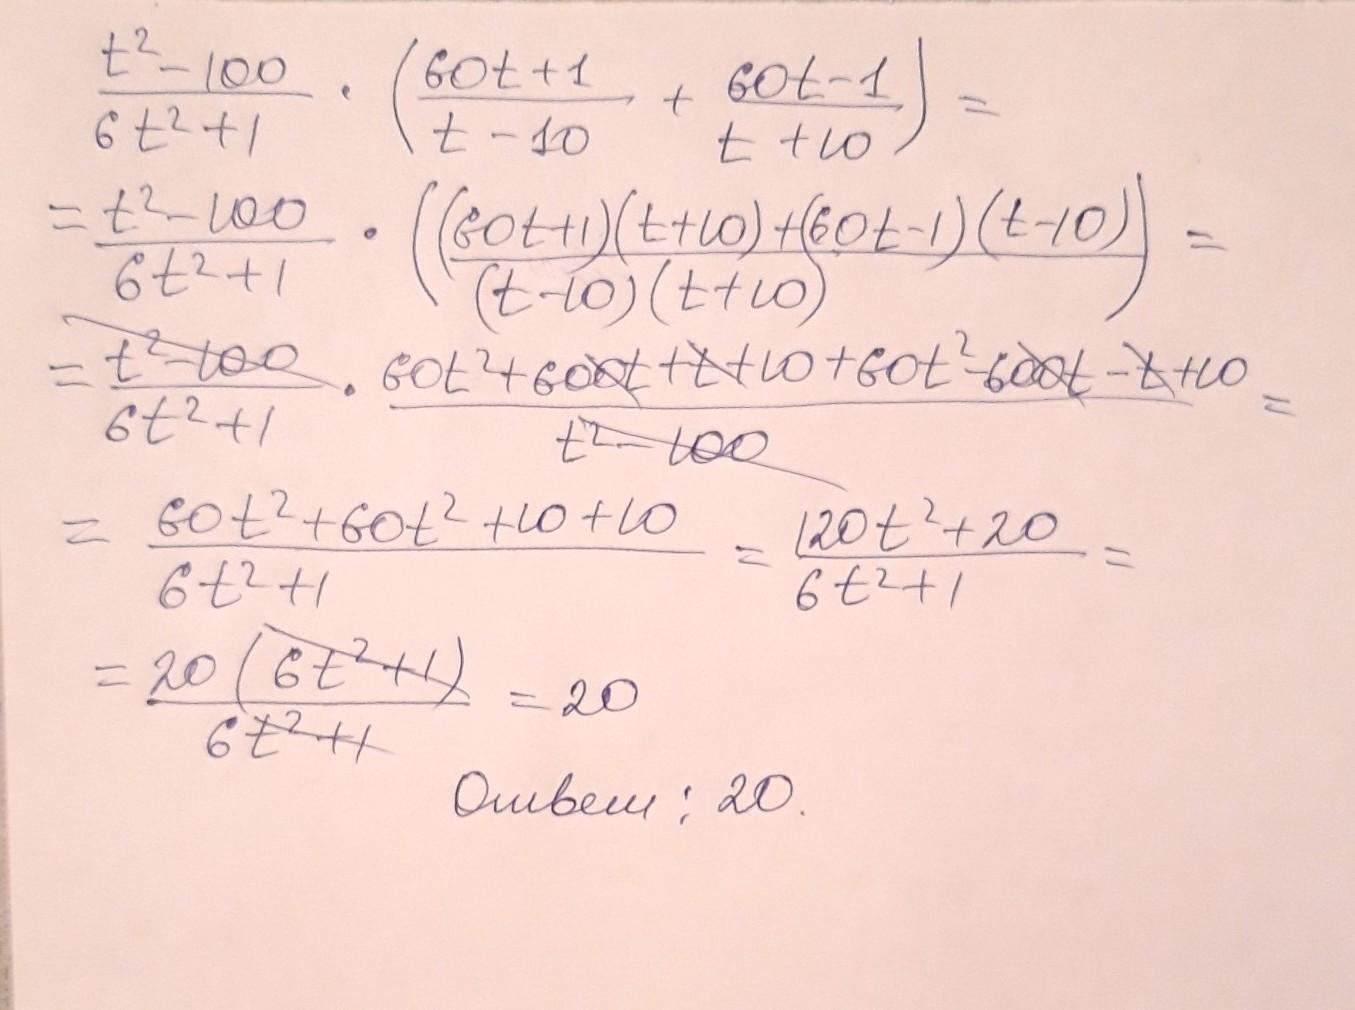 (t² - 100)/(6t² + 1) · ((60t + 1)/(t - 10) + (60t - 1)/(t + 10)) =
= (t² - 100)/(6t² + 1) · (((60t + 1)(t + 10) + (60t - 1)(t - 10))/((t - 10)(t + 10))) =
= (t² - 100)/(6t² + 1) · (60t² + 600t + t + 10 + 60t² - 600t - t + 10)/(t² - 100) =
= (60t² + 60t² + 10 + 10)/(6t² + 1) = (120t² + 20)/(6t² + 1) =
= 20(6t² + 1)/(6t² + 1) = 20
Ответ: 20.